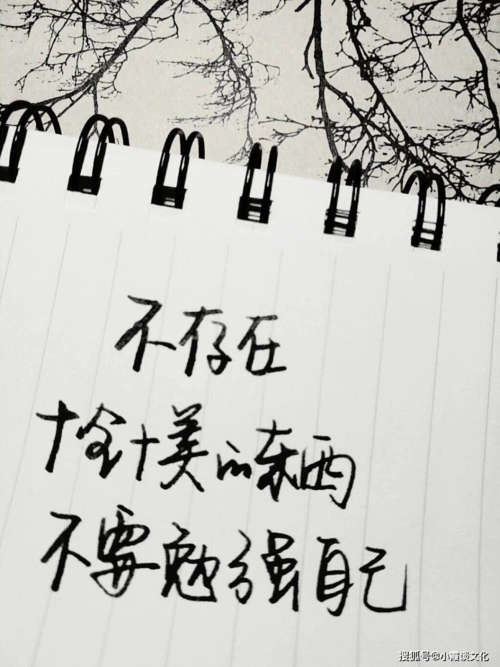 不存在
十全十美的东西
不要勉强自己
搜狐号@小霞谈文化